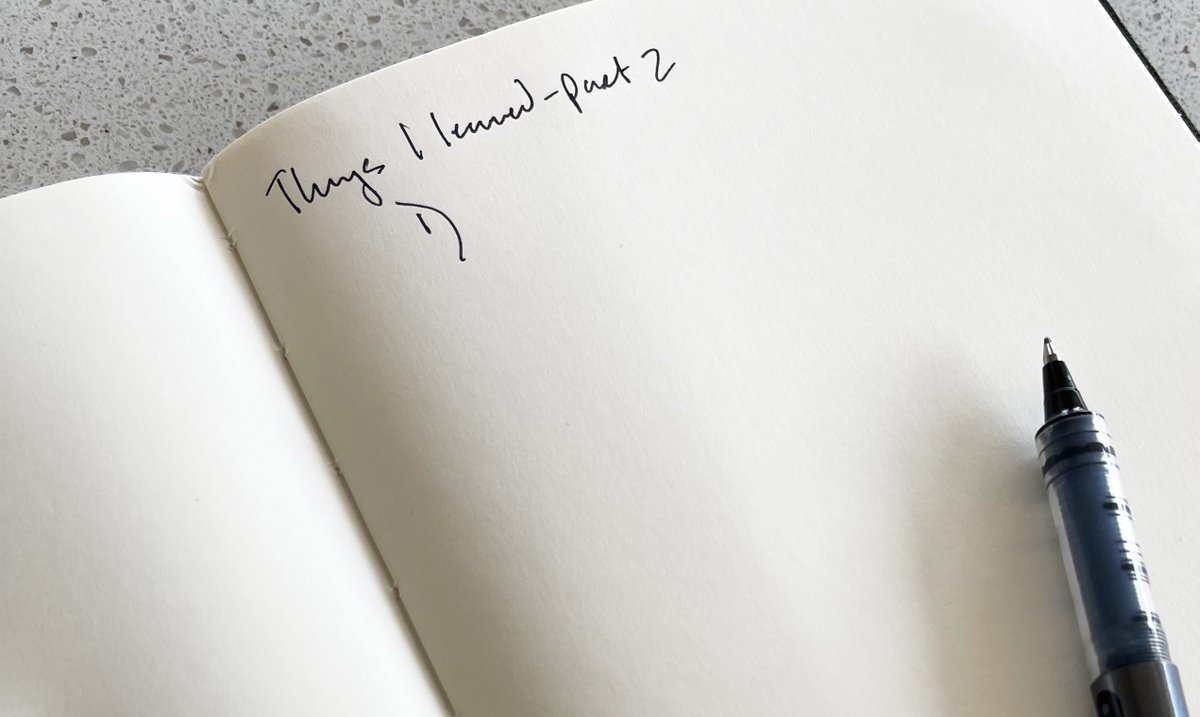 Things I learned - part 2
1)